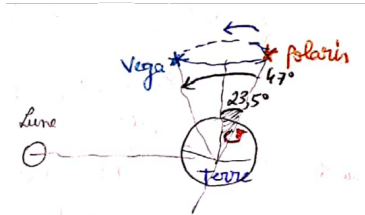 Vega
polaris
47°
23,5°
Lune
Terre